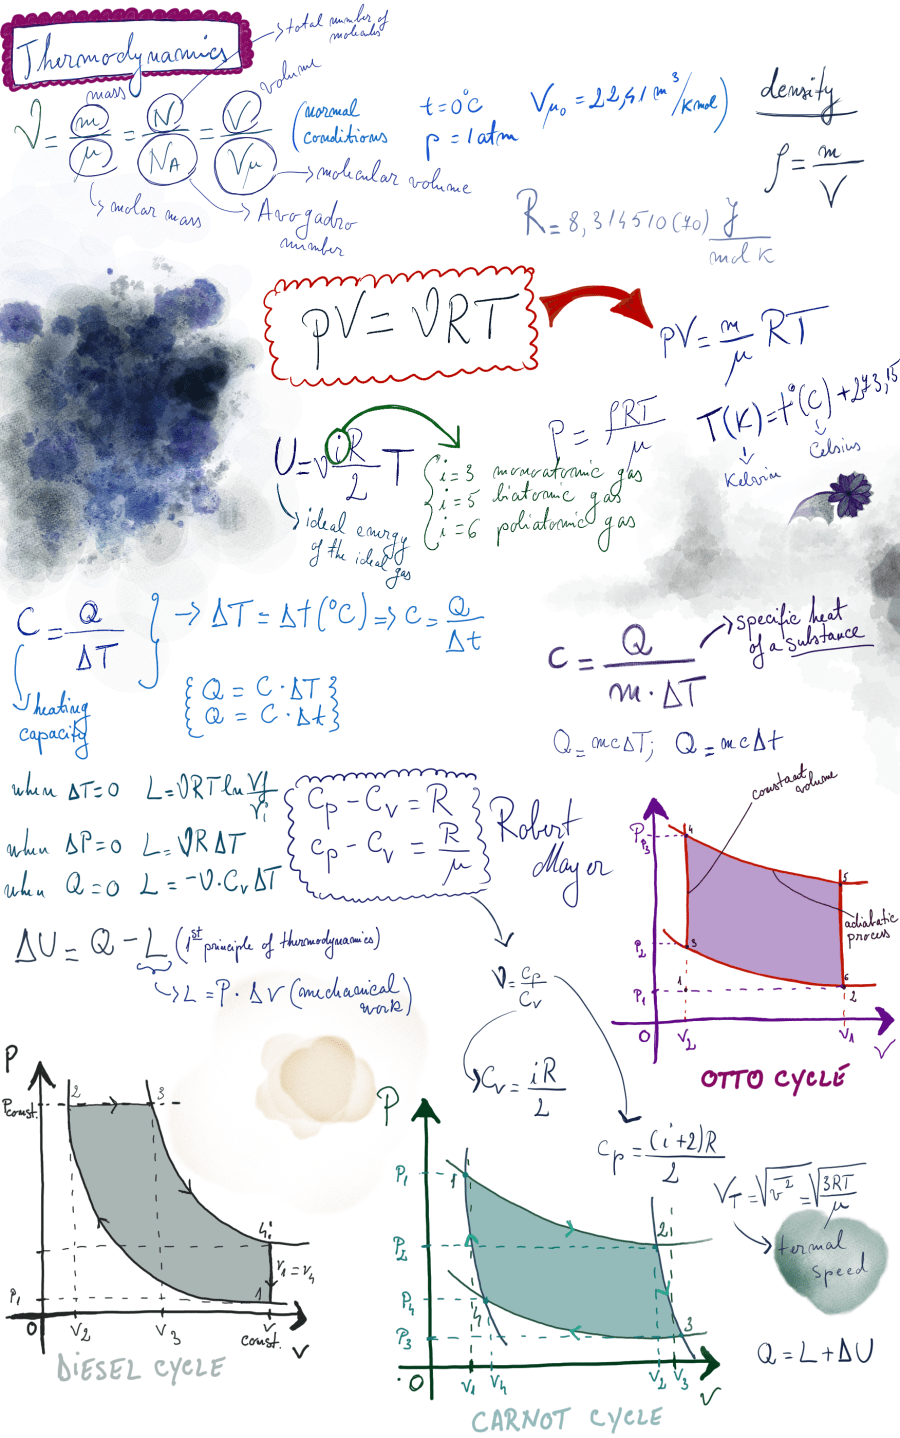 Thermodynamics
total number of molecules
mass
volume
ν = m/μ = N/N_A = V/Vμ
(normal conditions
t = 0°C
p = 1 atm
Vμ₀ = 22,41 m³/kmol)
molar mass
Avogadro number
molecular volume
density
ρ = m/V
R = 8,314510(70) J/mol K
pV = νRT
pV = m/μ RT
p = ρRT/μ
T(K) = t°(C) + 273,15
Kelvin
Celsius
U = ν iR/2 T
i = 3 monoatomic gas
i = 5 biatomic gas
i = 6 poliatomic gas
ideal energy
of the ideal
gas
C = Q/ΔT
→ ΔT = Δt(°C) ⇒ C = Q/Δt
heating
capacity
Q = C·ΔT
Q = C·Δt
c = Q/m·ΔT
specific heat
of a substance
Q = mcΔT; Q = mcΔt
when ΔT=0 L=νRT ln Vf/Vi
when ΔP=0 L=νRΔT
when Q=0 L=-ν·CvΔT
Cp - Cv = R
cp - cv = R/μ
Robert
Mayer
ΔU = Q - L (1st principle of thermodynamics)
L = P·ΔV (mechanical
work)
γ = Cp/Cv
Cv = iR/2
Cp = (i+2)R/2
constant
volume
adiabatic
process
P
P3
P2
P1
4
5
3
1
6
2
0
V2
V1
V
OTTO CYCLE
P
Pconst.
P1
2
3
4
1
V1 = V4
0
V2
V3
V
const.
V
DIESEL CYCLE
P
P1
P2
P4
P3
1
2
4
3
0
V1
V4
V2
V3
V
CARNOT CYCLE
VT = √v² = √3RT/μ
termal
speed
Q = L + ΔU